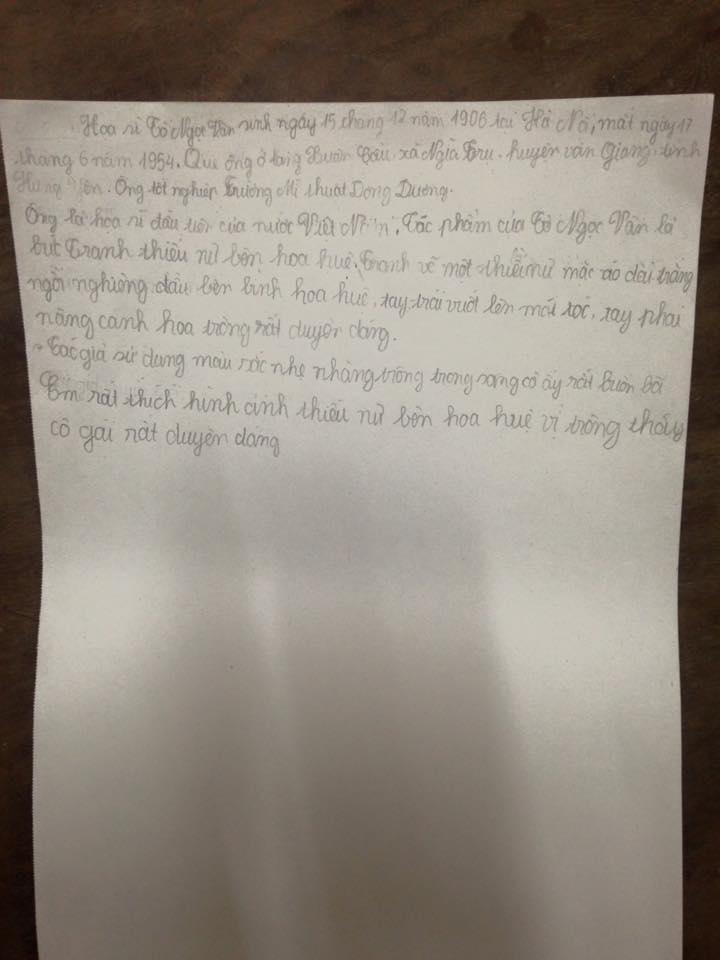 Họa sĩ Tô Ngọc Vân sinh ngày 15 tháng 12 năm 1906 tại Hà Nội, mất ngày 17
tháng 6 năm 1954. Quê ông ở làng Xuân Cầu, xã Nghĩa Trụ, huyện Văn Giang, tỉnh
Hưng Yên. Ông tốt nghiệp Trường Mĩ thuật Đông Dương.
Ông là họa sĩ đầu tiên của nước Việt Nam. Tác phẩm của Tô Ngọc Vân là
bức tranh thiếu nữ bên hoa huệ. Tranh vẽ một thiếu nữ mặc áo dài trắng
ngồi nghiêng đầu bên bình hoa huệ, tay trái vuốt lên mái tóc, tay phải
nâng cành hoa trông rất duyên dáng.
Tác giả sử dụng màu sắc nhẹ nhàng trông trong sáng cô ấy rất buồn bã
Em rất thích hình ảnh thiếu nữ bên hoa huệ vì trông thấy
cô gái rất duyên dáng